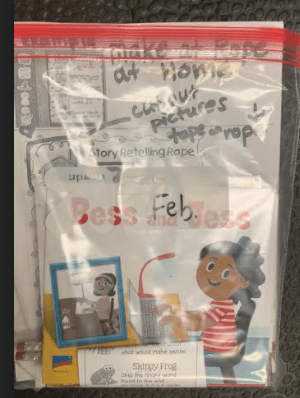 example
Make at Rope
at Home
- cut out
pictures
tape on rope
Story Retelling Rope
Bess and Jess
Feb.
what would make sense
Skippy Frog
Skip the tricky word